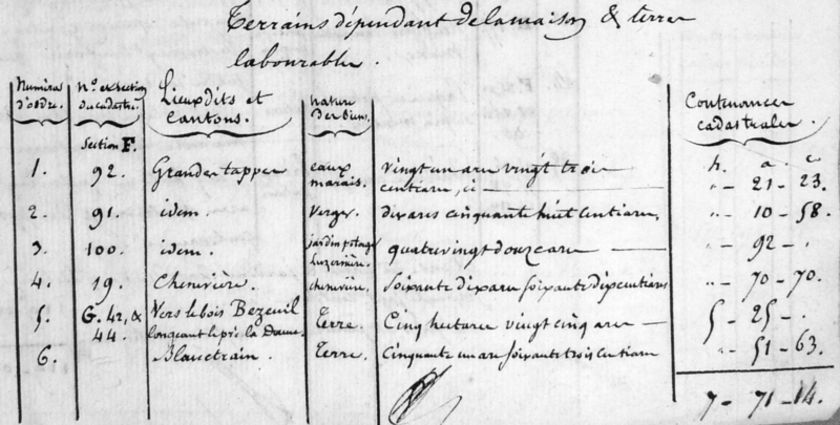 Terrains dépendant de la maison & terre
labourable.
Numéro d'ordre. Nº et section du cadastre. Lieux dits et cantons. nature des biens. Contenances cadastrales.
Section F. h. a. c
1. 92. Grandes tappes eaux marais. vingt un ares vingt trois centiares, ci — " - 21 - 23.
2. 91. idem. verger. dix ares cinquante huit centiares, " - 10 - 58.
3. 100. idem. jardin potager Luzernière. quatre vingt douze ares — " - 92 - .
4. 19. Chenevière. chenevière. Soixante dix ares soixante dix centiares " - 70 - 70.
5. G. 42, & 44. Vers le bois Bezeuil longeant le pré la Terre. Cinq hectares vingt cinq ares — 5 - 25 - .
6. Terre. Cinquante un ares soixante trois centiares " - 51 - 63.
7 - 71 - 14.